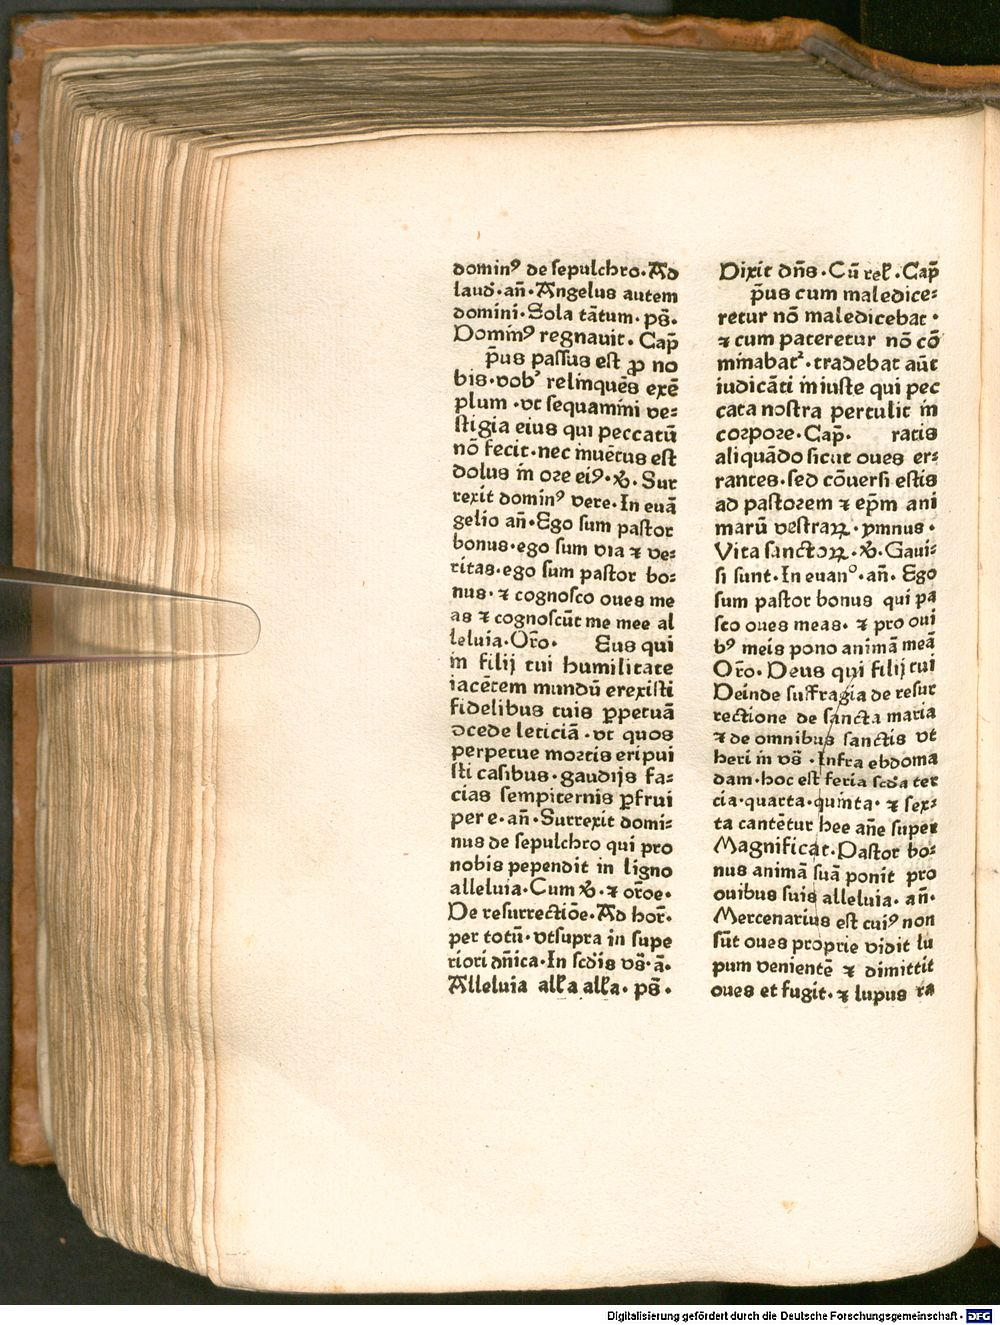 dominꝰ de sepulchro·Ad
laud̄·an̄·Angelus autem
domini·Sola tātum·ps̄.
Dominꝰ regnauit·Cap̄
p̄us passus est ꝓ no
bis·vobꝫ relinquēs exē
plum·vt sequamini ve⸗
stigia eius qui peccatū
nō fecit·nec inuētus est
dolus in ore eiꝰ·℣·Sur
rexit dominꝰ vere·In euā
gelio an̄·Ego sum pastor
bonus·ego sum via ⁊ ve⸗
ritas·ego sum pastor bo⸗
nus·⁊ cognosco oues me
as ⁊ cognoscūt me mee al
leluia·Or̄o· Eus qui
in filij tui humilitate
iacētem mundū erexisti
fidelibus tuis ꝑpetuā
ɔcede leticiā·vt quos
perpetue mortis eripui
sti casibus·gaudijs fa⸗
cias sempiternis ꝑfrui
per e·an̄·Surrexit domi⸗
nus de sepulchro qui pro
nobis pependit in ligno
alleluia·Cum ℣·⁊ or̄oe·
De resurrectiōe·Ad hor̄·
per totū·vtsupra in supe
riori dn̄ica·In scd̄is vs̄·ā·
Alleluia all'a all'a·ps̄·
Dixit dn̄s·Cū rel'·Cap̄
p̄us cum maledice⸗
retur nō maledicebat·
⁊ cum pateretur nō cō
minabatᷣ·tradebat aūt
iudicāti iniuste qui pec
cata nostra pertulit in
corpore·Cap̄· ratis
aliquādo sicut oues er⸗
rantes·sed cōuersi estis
ad pastorem ⁊ ep̄m ani
marū vestraꝝ·ymnus·
Vita sanctoꝝ·℣·Gaui⸗
si sunt·In euanᵒ·an̄·Ego
sum pastor bonus qui pa
sco oues meas·⁊ pro oui
bꝰ meis pono animā meā
Or̄o·Deus qui filij tui
Deinde suffragia de resur
rectione de sancta maria
⁊ de omnibus sanctis vt
heri in vs̄·Infra ebdoma
dam·hoc est feria scd̄a ter
cia·quarta·quinta·⁊ sex⸗
ta cantētur hee an̄e super
Magnificat·Pastor bo⸗
nus animā suā ponit pro
ouibus suis alleluia·an̄·
Mercenarius est cuiꝰ non
sūt oues proprie vidit lu
pum venientē ⁊ dimittit
oues et fugit·⁊ lupus ra
Digitalisierung gefördert durch die Deutsche Forschungsgemeinschaft - DFG